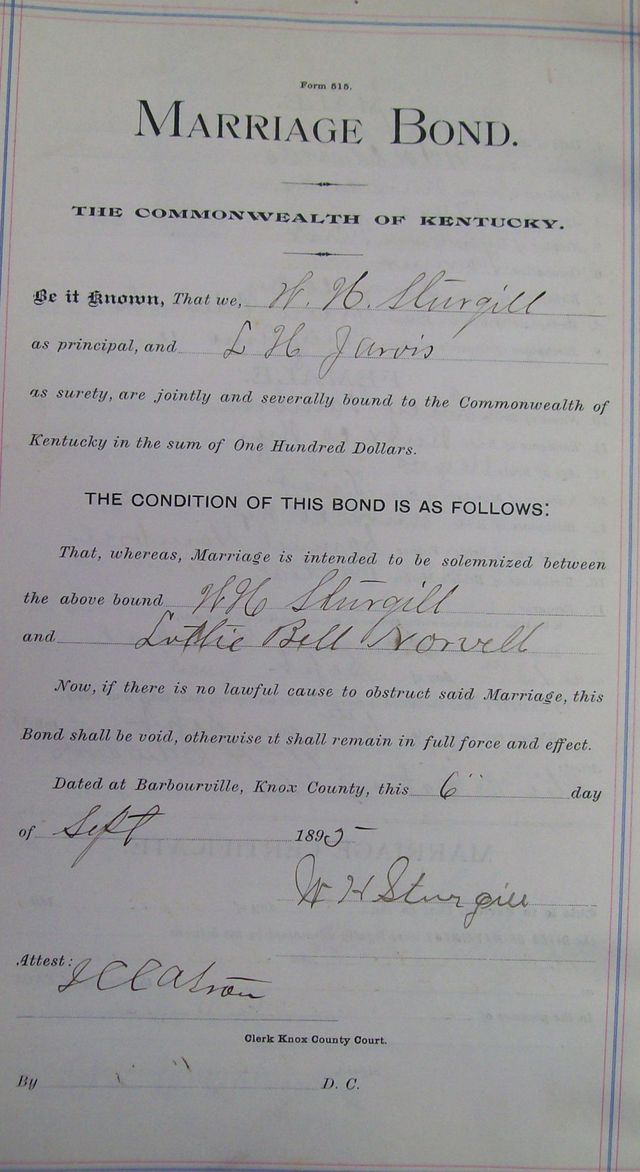 Form 515.
MARRIAGE BOND.
THE COMMONWEALTH OF KENTUCKY.
Be it Known, That we, W. H. Sturgill
as principal, and L H Jarvis
as surety, are jointly and severally bound to the Commonwealth of
Kentucky in the sum of One Hundred Dollars.
THE CONDITION OF THIS BOND IS AS FOLLOWS:
That, whereas, Marriage is intended to be solemnized between
the above bound W H Sturgill
and Lottie Bell Norvell
Now, if there is no lawful cause to obstruct said Marriage, this
Bond shall be void, otherwise it shall remain in full force and effect.
Dated at Barbourville, Knox County, this 6" day
of Sept 1895
W H Sturgill
Attest:
Clerk Knox County Court.
By D. C.